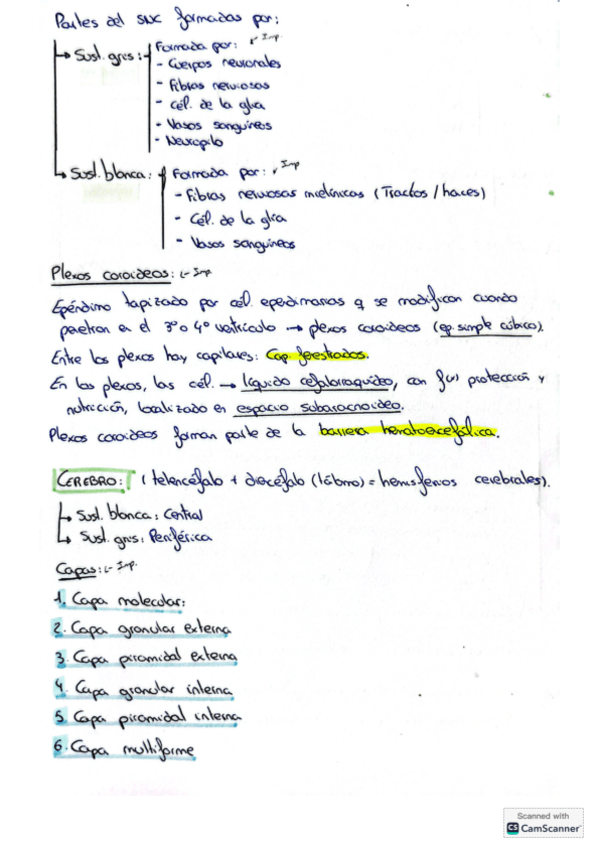 Partes del SNC formadas por:
→ Sust. gris: Formada por: ✓ Imp
- Cuerpos neuronales
- Fibras nerviosas
- Cél. de la glía
- Vasos sanguíneos
- Neuropilo
→ Sust. blanca: Formada por: ✓ Imp
- Fibras nerviosas mielínicas (Tractos / haces)
- Cél. de la glía
- Vasos sanguíneos
Plexos coroideos: Imp
Epéndimo tapizado por cél. ependimarias q se modifican cuando
penetran en el 3º o 4º ventrículo → plexos coroideos (ep. simple cúbico).
Entre los plexos hay capilares: Cap. fenestrados.
En los plexos, las cél. → líquido cefalorraquídeo, con f(x) protección y
nutrición, localizado en espacio subaracnoideo.
Plexos coroideos forman parte de la barrera hematoencefálica.
CEREBRO: (telencéfalo + diencéfalo (lóbulo) = hemisferios cerebrales).
→ Sust. blanca: Central
→ Sust. gris: Periférica
Capas: Imp.
1. Capa molecular:
2. Capa granular externa
3. Capa piramidal externa
4. Capa granular interna
5. Capa piramidal interna
6. Capa multiforme
Scanned with
CS CamScanner